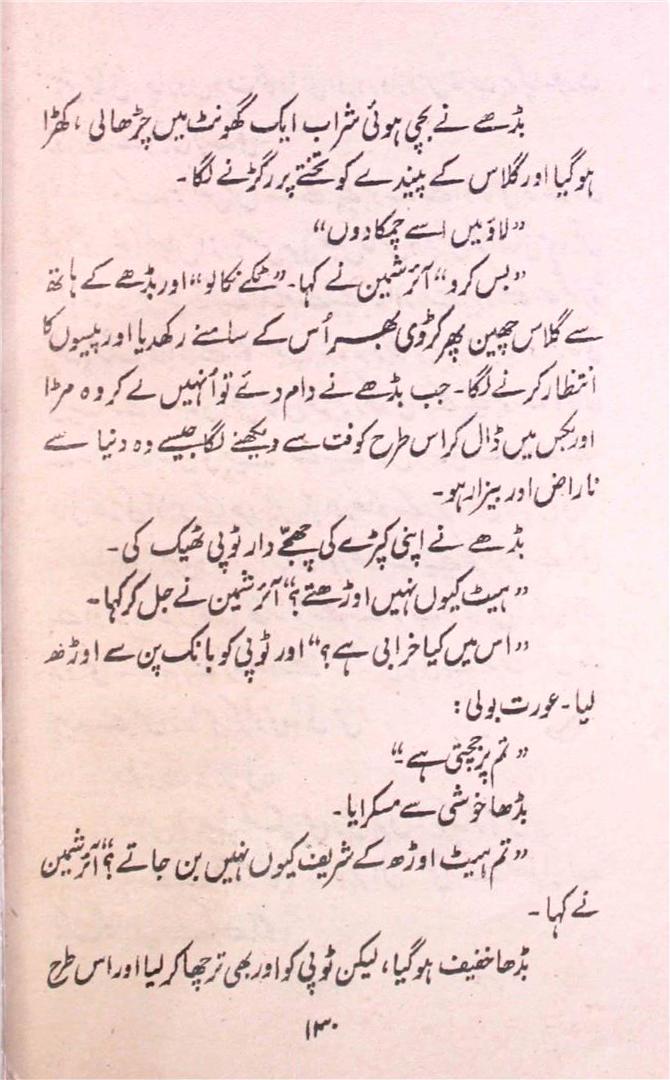 بڈھے نے بچی ہوئی شراب ایک گھونٹ میں چڑھالی، کھڑا
ہوگیا اور گلاس کے پیندے کو تختے پر رگڑنے لگا۔
”لاؤ میں اسے چمکا دوں“
”بس کرو“ آئرشمین نے کہا۔ ”ٹکے نکالو“ اور بڈھے کے ہاتھ
سے گلاس چھین پھر کڑوی بھر اُس کے سامنے رکھدیا اور پیسوں کا
انتظار کرنے لگا۔ جب بڈھے نے دام دئے تو اُنہیں لے کر وہ مڑا
اور بکس میں ڈال کر اس طرح کوفت سے دیکھنے لگا جیسے وہ دنیا سے
ناراض اور بیزار ہو۔
بڈھے نے اپنی کپڑے کی چھجّے دار ٹوپی ٹھیک کی۔
”ہیٹ کیوں نہیں اوڑھتے؟“ آئرشمین نے جل کر کہا۔
”اس میں کیا خرابی ہے؟“ اور ٹوپی کو بانک پن سے اوڑھ
لیا۔ عورت بولی:
”تم پر جچتی ہے۔“
بڈھا خوشی سے مسکرایا۔
”تم ہیٹ اوڑھ کے شریف کیوں نہیں بن جاتے؟“ آئرشمین
نے کہا۔
بڈھا خفیف ہوگیا، لیکن ٹوپی کو اور بھی ترچھا کر لیا اور اس طرح
۱۳۰